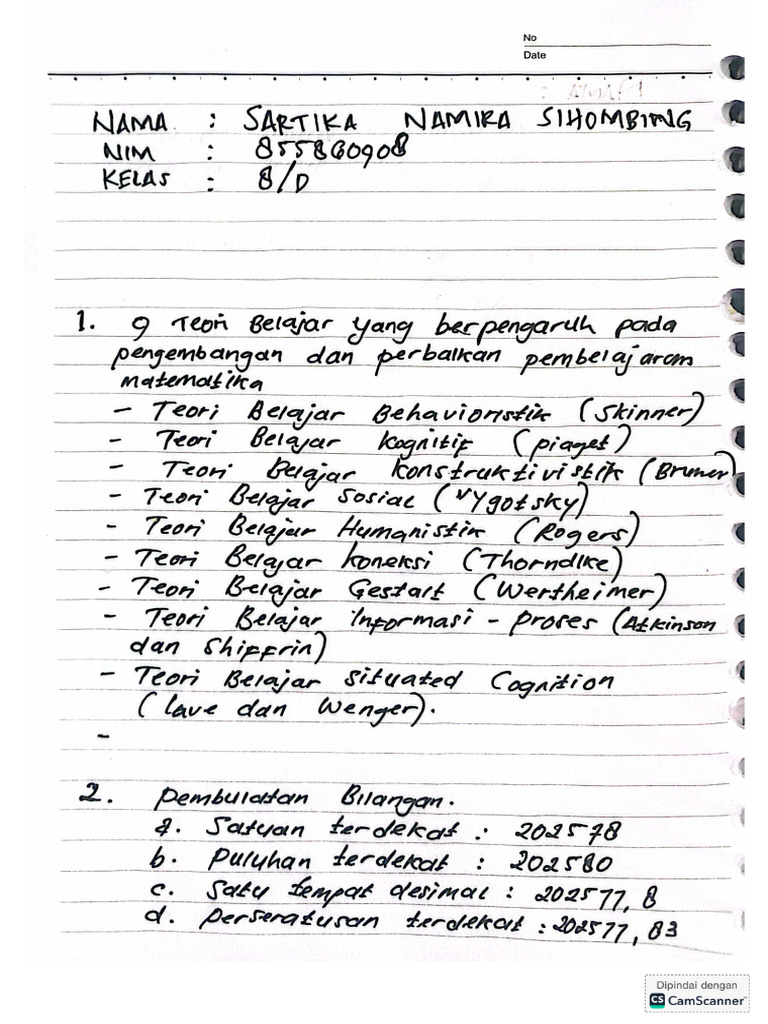 No
Date
NAMA : SARTIKA NAMIRA SIHOMBING
NIM : 855860908
KELAS : 8/D
1. 9 Teori Belajar yang berpengaruh pada
pengembangan dan perbalkan pembelajaram
matematika
- Teori Belajar Behavioristik (Skinner)
- Teori Belajar kognitif (piaget)
- Teori Belajar konstruktivistik (Bruner)
- Teori Belajar Sosial (Vygotsky)
- Teori Belajar Humanistik (Rogers)
- Teori Belajar koneksi (Thorndike)
- Teori Belajar Gestalt (Wertheimer)
- Teori Belajar Informasi - proses (Atkinson
dan Shiffrin)
- Teori Belajar situated Cognition
(lave dan Wenger).
-
2. pembulatan Bilangan.
a. Satuan terdekat : 202578
b. puluhan terdekat : 202580
c. Satu tempat desimal : 202577,8
d. perseratusan terdekat : 202577,83
Dipindai dengan
CS CamScanner